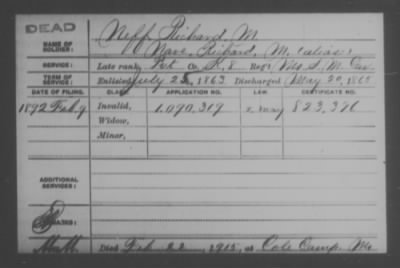 DEAD
Neff, Richard M
NAME OF SOLDIER: Nave, Richard, M. (alias)
SERVICE: Late rank, Pvt Co. K, 8 Reg't Mo. S. M. Cav.
TERM OF SERVICE: Enlisted July 25, 1863 Discharged May 20, 1865
DATE OF FILING. CLASS. APPLICATION NO. LAW. CERTIFICATE NO.
1892 Feb 9 Invalid, 1.090,319 823,
Widow,
Minor,
ADDITIONAL SERVICES:
REMARKS:
Died Feb 22, 1915, at Cole Camp, Mo